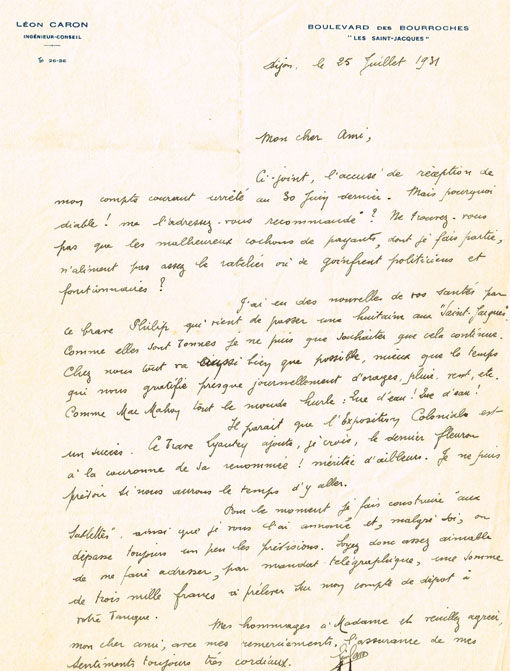 LÉON CARON
INGÉNIEUR-CONSEIL
26-26
BOULEVARD DES BOURROCHES
"LES SAINT-JACQUES"
Dijon, le 25 Juillet 1931
Mon cher Ami,
Ci-joint, l'accusé de réception de
mon compte courant arrêté au 30 Juin dernier. Mais pourquoi
diable! me l'adressez-vous recommandé? Ne trouvez-vous
pas que les malheureux cochons de payants, dont je fais partie,
n'aliment pas assez le ratelier où se goinfrent politiciens et
fonctionnaires?
J'ai eu des nouvelles de vos santés par
ce brave Philip qui vient de passer une huitaine aux "Saint-Jacques".
Comme elles sont bonnes je ne puis que souhaiter que cela continue.
Chez nous tout va aussi bien que possible, mieux que le temps
qui nous gratifie presque journellement d'orages, pluie, vent, etc.
Comme Mac Mahon tout le monde hurle: Que d'eau! Que d'eau!
Il parait que l'Exposition Coloniale est
un succès. Ce brave Lyautey ajoute, je crois, le dernier fleuron
à la couronne de sa renommée! méritée d'ailleurs. Je ne puis
prévoir si nous aurons le temps d'y aller.
Pour le moment je fais construire "aux
", ainsi que je vous l'ai annoncé et, malgré soi, on
dépasse toujours un peu les prévisions. Soyez donc assez aimable
de me faire adresser, par mandat télégraphique, une somme
de trois mille francs à prélever sur mon compte de dépôt à
votre Banque.
Mes hommages à Madame et veuillez agréer,
mon cher ami, avec mes remerciements, l'assurance de mes
sentiments toujours très cordiaux.